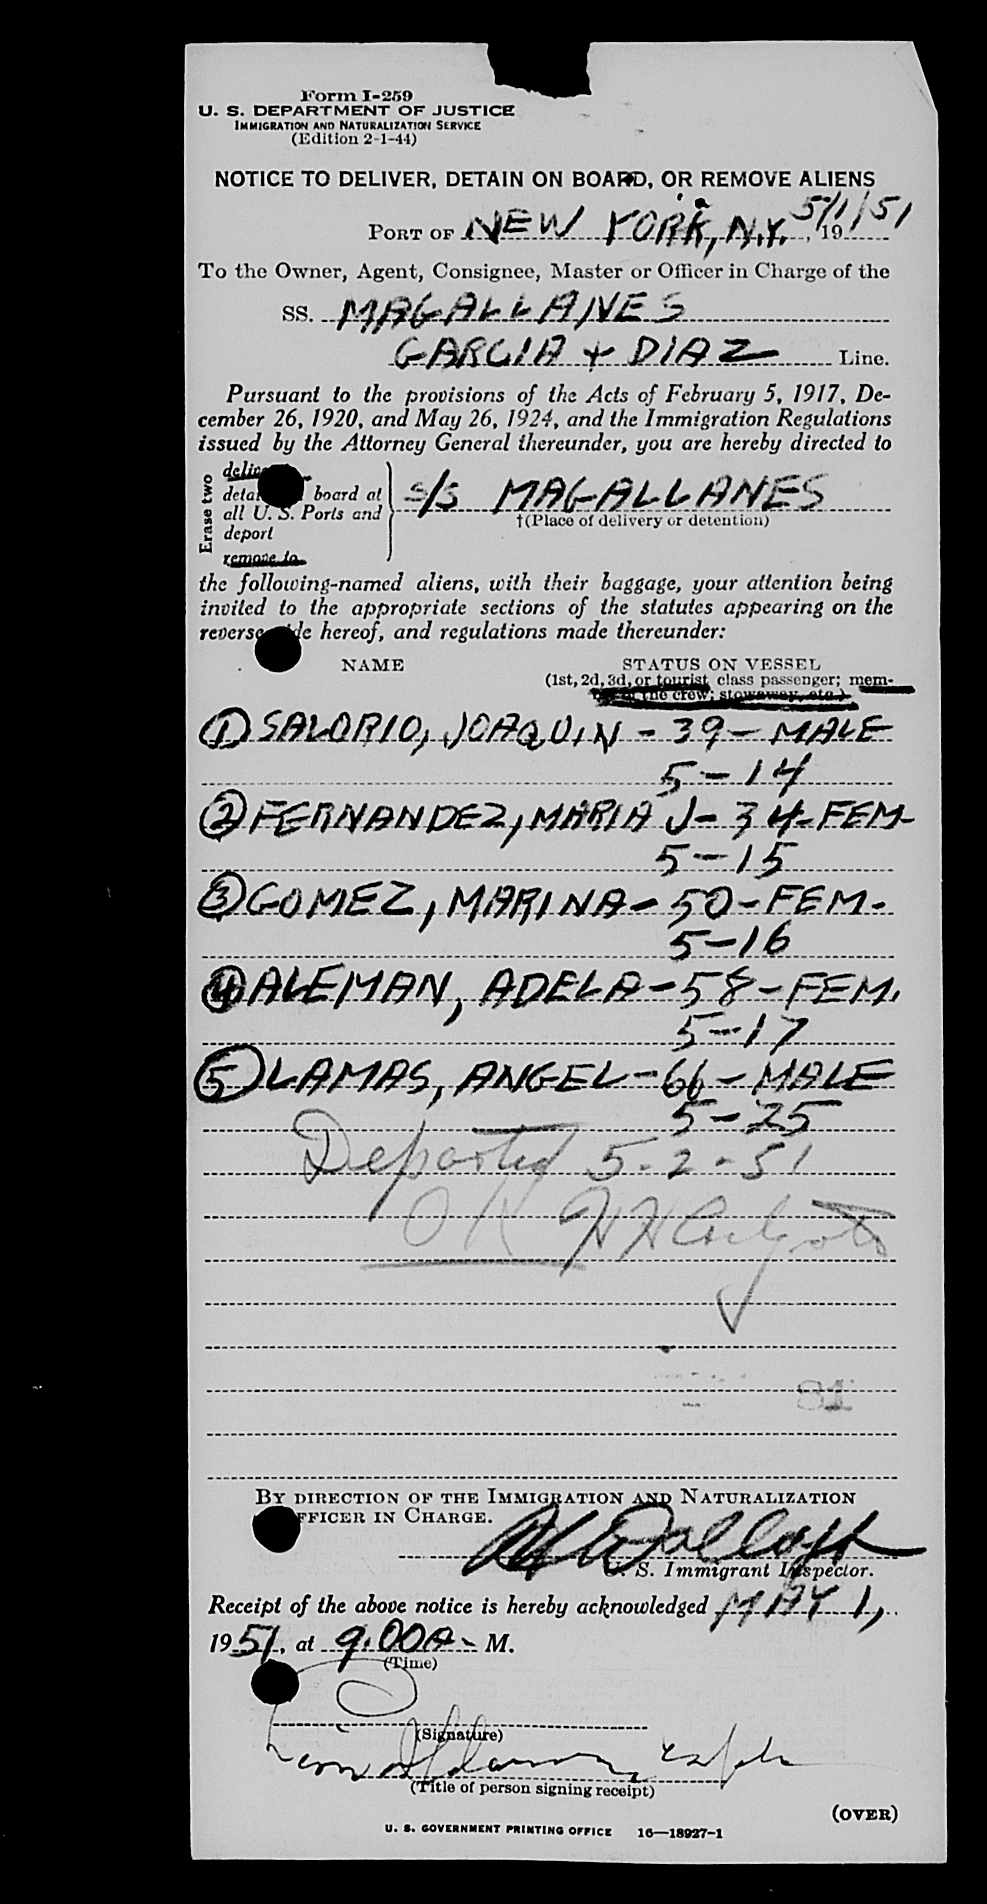 Form I-259
U. S. DEPARTMENT OF JUSTICE
IMMIGRATION AND NATURALIZATION SERVICE
(Edition 2-1-44)
NOTICE TO DELIVER, DETAIN ON BOARD, OR REMOVE ALIENS
PORT OF NEW YORK, N.Y. 5/1/51, 19
To the Owner, Agent, Consignee, Master or Officer in Charge of the
SS. MAGALLANES
GARCIA + DIAZ Line.
Pursuant to the provisions of the Acts of February 5, 1917, De-
cember 26, 1920, and May 26, 1924, and the Immigration Regulations
issued by the Attorney General thereunder, you are hereby directed to
Erase two
board at
all U. S. Ports and
deport
remove to
S/S MAGALLANES
†(Place of delivery or detention)
the following-named aliens, with their baggage, your attention being
invited to the appropriate sections of the statutes appearing on the
reverse hereof, and regulations made thereunder:
NAME STATUS ON VESSEL
(1st, 2d, 3d, or tourist class passenger; mem-
the crew; stowaway, etc.)
① SALORIO, JOAQUIN - 39 - MALE
5-14
② FERNANDEZ, MARIA J - 34 - FEM-
5-15
③ GOMEZ, MARINA - 50 - FEM.
5-16
④ ALEMAN, ADELA - 58 - FEM.
5-17
⑤ LAMAS, ANGEL - 66 - MALE
5-25
Deported 5-2-51
OK
81
BY DIRECTION OF THE IMMIGRATION AND NATURALIZATION
OFFICER IN CHARGE.
S. Immigrant Inspector.
Receipt of the above notice is hereby acknowledged MAY 1,
1951, at 9:00 A- M.
(Time)
(Signature)
(Title of person signing receipt)
(OVER)
U. S. GOVERNMENT PRINTING OFFICE 16—18927-1